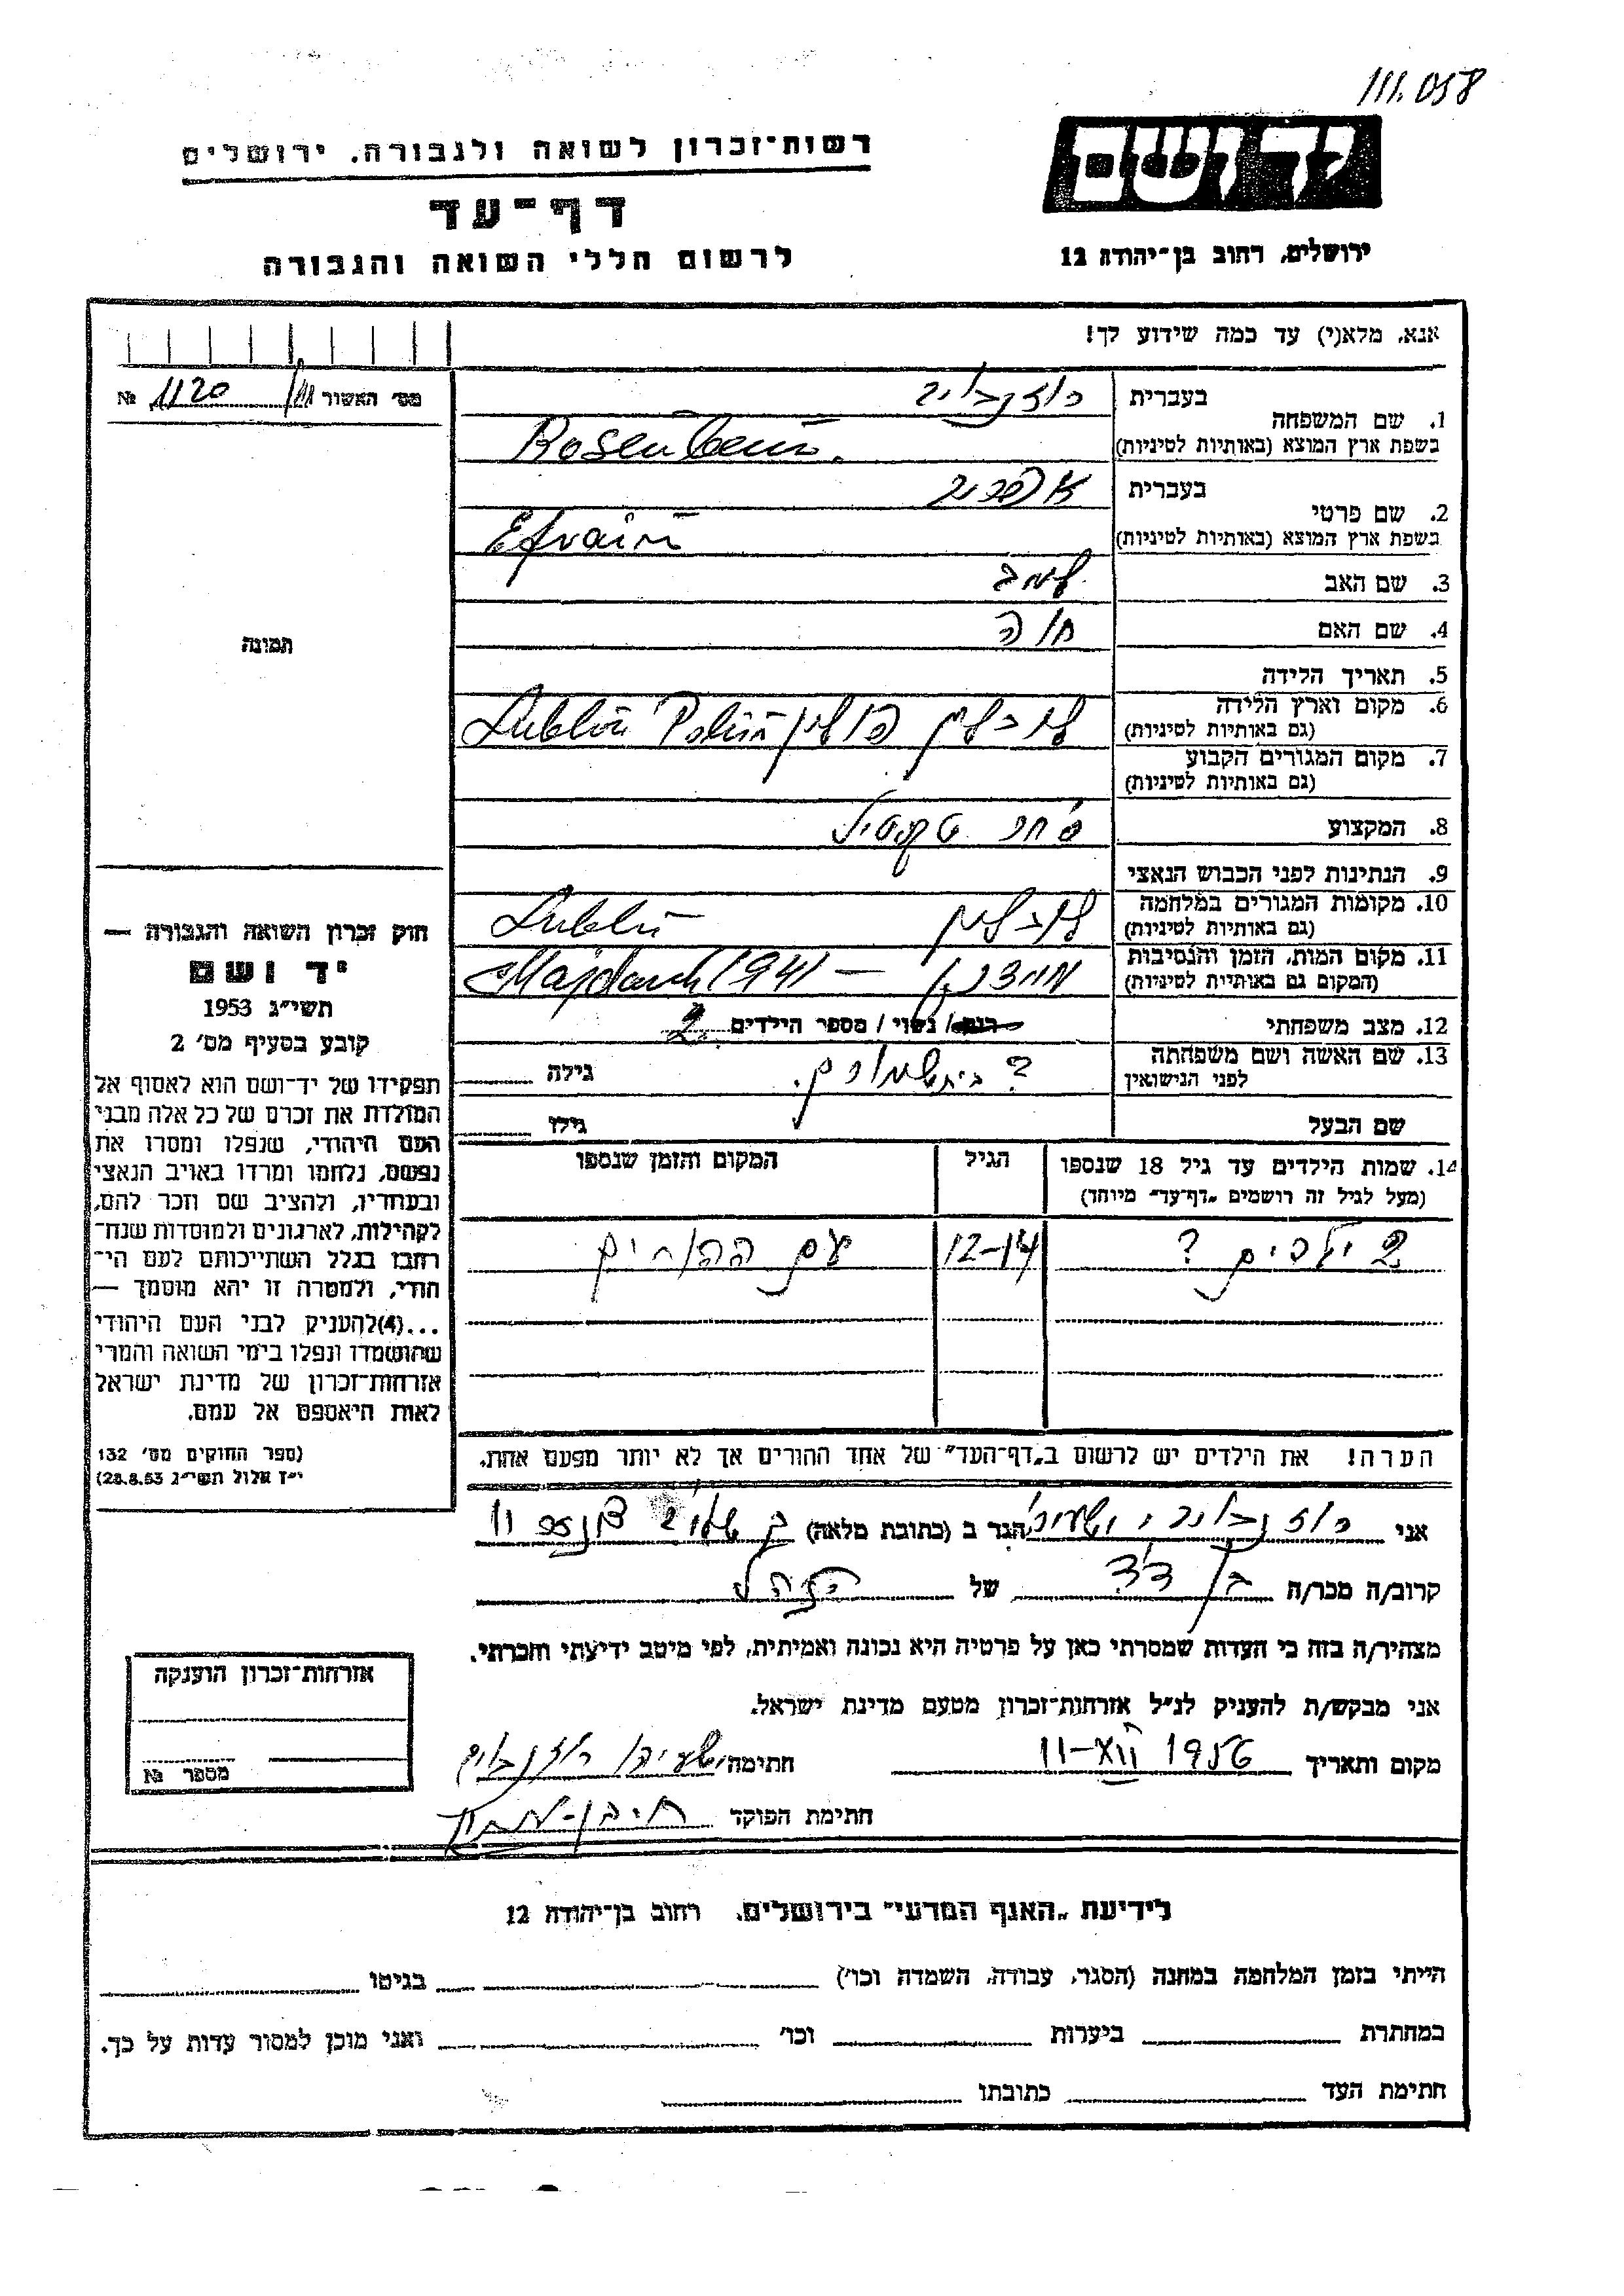 111.058
יד ושם
רשות־זכרון לשואה ולגבורה, ירושלים
דף־עד
לרשום חללי השואה והגבורה
ירושלים, רחוב בן־יהודה 12
אנא, מלא(י) עד כמה שידוע לך!
מס׳ האשור 1120 №
1. שם המשפחה
בעברית
רוזנבוים
בשפת ארץ המוצא (באותיות לטיניות) Rosenbaum
2. שם פרטי
בעברית
אפרים
בשפת ארץ המוצא (באותיות לטיניות) Efraim
3. שם האב
4. שם האם חוה
5. תאריך הלידה
6. מקום וארץ הלידה
(גם באותיות לטיניות)
לובלין פולין Lublin Polin
7. מקום המגורים הקבוע
(גם באותיות לטיניות)
8. המקצוע סוחר טקסטיל
9. הנתינות לפני הכבוש הנאצי
10. מקומות המגורים במלחמה
(גם באותיות לטיניות)
לובלין Lublin
11. מקום המות, הזמן והנסיבות
(המקום גם באותיות לטיניות)
מיידנק — Majdanek 1941
12. מצב משפחתי רווק / נשוי / מספר הילדים 2
13. שם האשה ושם משפחתה
לפני הנישואין
? גילה
שם הבעל גילו
14. שמות הילדים עד גיל 18 שנספו הגיל המקום והזמן שנספו
(מעל לגיל זה רושמים „דף־עד״ מיוחד)
2 ילדים ? 12-14 עם ההורים
הערה! את הילדים יש לרשום ב„דף־העד״ של אחד ההורים אך לא יותר מפעם אחת.
תמונה
חוק זכרון השואה והגבורה —
יד ושם
תשי״ג 1953
קובע בסעיף מס׳ 2
תפקידו של יד־ושם הוא לאסוף אל
המולדת את זכרם של כל אלה מבני
העם היהודי, שנפלו ומסרו את
נפשם, נלחמו ומרדו באויב הנאצי
ובעוזריו, ולהציב שם וזכר להם,
לקהילות, לארגונים ולמוסדות שנח־
רבו בגלל השתייכותם לעם הי־
הודי, ולמטרה זו יהא מוסמך —
...(4)להעניק לבני העם היהודי
שהושמדו ונפלו בימי השואה והמרי
אזרחות־זכרון של מדינת ישראל
לאות היאספם אל עמם.
(ספר החוקים מס׳ 132
י״ז אלול תשי״ג 28.8.53)
אני רוזנבוים ישעיהו הגר ב (כתובת מלאה) 11
קרוב/ה מכר/ה בן דוד של
מצהיר/ה בזה כי העדות שמסרתי כאן על פרטיה היא נכונה ואמיתית, לפי מיטב ידיעתי והכרתי.
אני מבקש/ת להעניק לנ״ל אזרחות־זכרון מטעם מדינת ישראל.
מקום ותאריך 11-XII 1956 חתימה ישעיהו רוזנבוים
חתימת הפוקד
אזרחות־זכרון הוענקה
מספר №
לידיעת „האגף המדעי״ בירושלים, רחוב בן־יהודה 12
הייתי בזמן המלחמה במחנה (הסגר, עבודה, השמדה וכו׳) בגיטו
במחתרת ביערות וכו׳ ואני מוכן למסור עדות על כך.
חתימת העד כתובתו